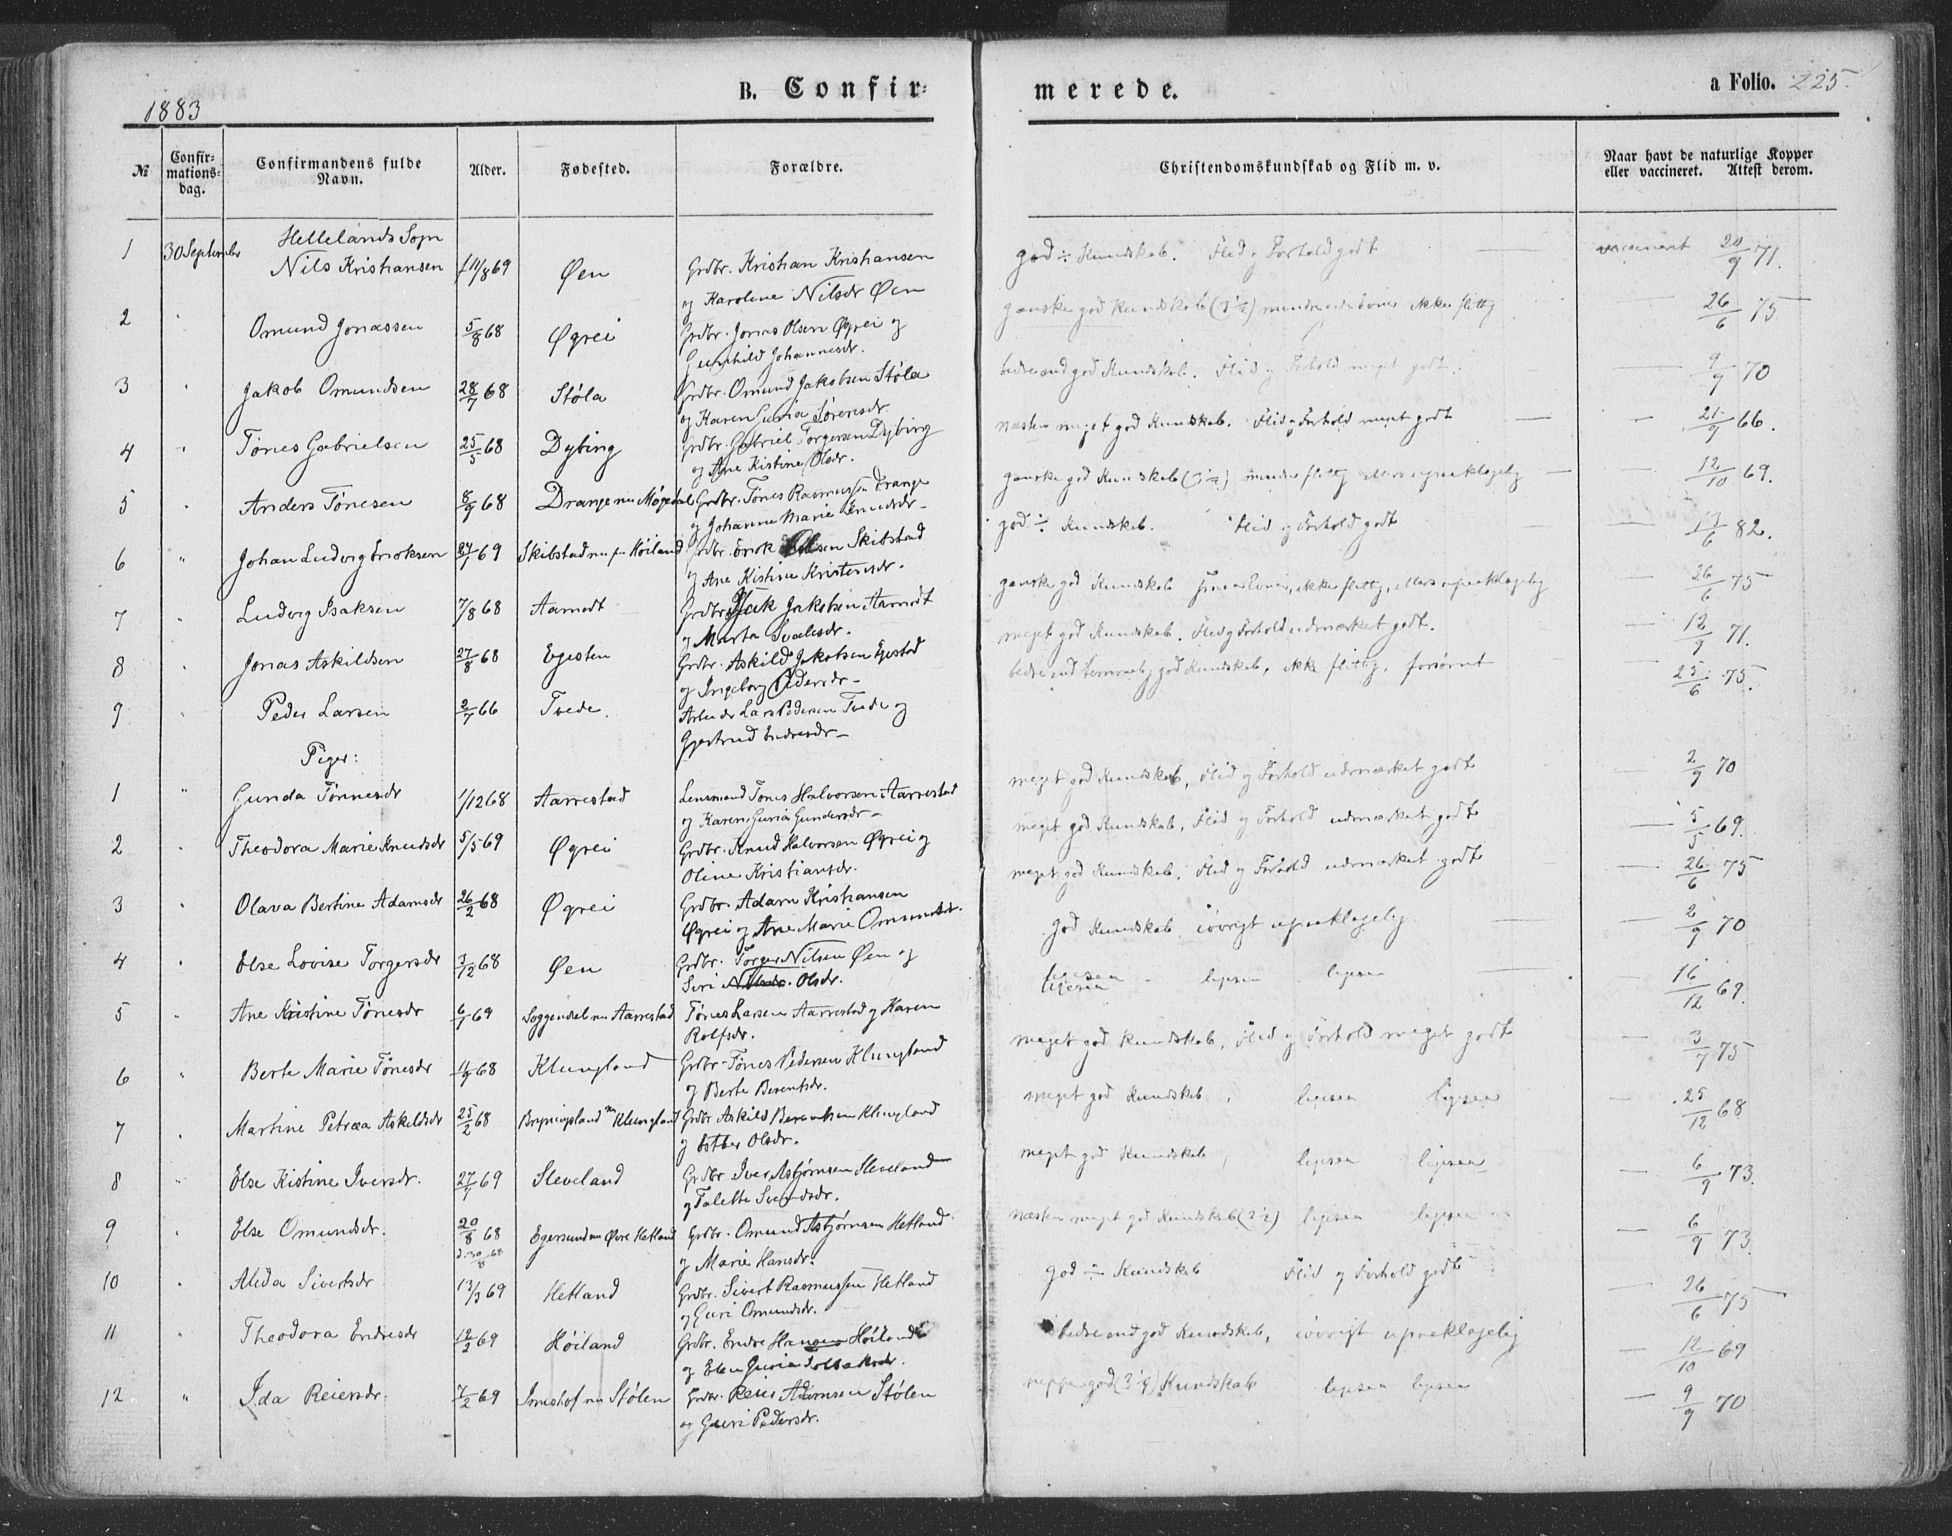 1883
B. Confir-
merede.
a Folio. 225.
№
Confir-
mations-
dag.
Confirmandens fulde
Navn.
Alder.
Fødested.
Forældre.
Christendomskundskab og Flid m. v.
Naar havt de naturlige Kopper
eller vaccineret. Attest derom.
Hellelands Sogn
1 30 September Nils Kristiansen 11/8 69 Øen Grdbr. Kristian Kristiansen god ÷ Kundskab. Flid og Forhold godt vaccineret 9 71.
og Karoline Nilsdr Øen
2 " Omund Jonassen 5/8 68 Øgrei Grdbr. Jonas Olsen Øgrei og ganske god Kundskab ikke flittig — 26/6 75
Gunhild Johannesdr.
3 " Jakob Omundsen 28/7 68 Støla Grdbr. Omund Jakobsen Støla bedre end god Kundskab. Flid og Forhold meget godt. — 9/9 70
og Karen Guria Sørensdr.
4 " Tønes Gabrielsen 25/5 68 Dybing Grdbr. Gabriel Torgersen Dybing næsten meget god Kundskab. Flid og Forhold meget godt — 21/9 66.
og Ane Kistine Olsdr.
5 " Anders Tønesen 8/9 68 Drange nu Møgedal Grdbr. Tønes Rasmussen Drange ganske god Kundskab mindre flittig ellers upaaklagelig — 12/10 69.
og Johanne Marie
6 " Johan Ludvig Eriksen 69 Skibstad nu Høiland Grdbr. Erik Olsen Skibstad god ÷ Kundskab. Flid og Forhold godt — 6 82.
og Ane Kistine Kristensdr.
7 " Ludvig Isaksen 7/8 68 Aamodt Grdbr. Isak Jakobsen Aamodt ganske god Kundskab ikke flittig, ellers upaaklagelig — 26/6 75
og Marta
8 " Jonas Askildsen 27/8 68 Egesten Grdbr. Askild Jakobsen Egestad meget god Kundskab. Flid og Forhold udmærket godt. — 12/9 71.
og Ingeborg Pedersdr
9 " Peder Larsen 2/7 66 Tvede. Lars Pedersen Tvede og bedre end god Kundskab, ikke flittig, forsømt — 25/6 75.
Gjertrud Endresdr
Piger:
1 " Gunda Tønnesdr 1/12 68 Aarrestad Lensmand Tønes Halvorsen Aarrestad meget god Kundskab, Flid og Forhold udmærket godt — 2/9 70
og Karen Guria Gundersdr
2 " Theodora Marie Knudsdr 5/5 69 Øgrei Grdbr. Knud Halvorsen Øgrei og meget god Kundskab, Flid og Forhold udmærket godt — 5/5 69.
Oline Kristiansdr.
3 " Olava Bertine Adamsdr 26/2 68 Øgrei Grdbr. Adam Kristiansen meget god Kundskab, Flid og Forhold udmærket godt — 26/6 75
Øgrei og Ane Marie Omundsdr.
4 " Else Lovise Torgersdr 3/12 68 Øen Grdbr. Torger Nilsen Øen og god Kundskab, iøvrigt upaaklagelig. — 2/9 70
Siri Nilsdr. Olsdr.
5 " Ane Kristine Tønesdr 69 Soggendal nu Aarrestad Tønes Larsen Aarrestad og Karen ligesaa ligesaa ligesaa — 16/12 69.
Rolfsdr.
6 " Berte Marie Tønesdr 68 Klungland Grdbr. Tønes Pedersen Klungland meget god Kundskab, Flid og Forhold meget godt — 3/7 75
og Berte Berentsdr.
7 " Martine Petræa Askeldsdr 25/2 68 nu Klungland Grdbr Askild Berentsen Klungland meget god Kundskab, ligesaa ligesaa — 25/12 68
og Olsdr.
8 " Else Kistine Iversdr. 69 Sleveland Grdbr Iver Asbjørnsen Sleveland meget god Kundskab, ligesaa ligesaa — 6/9 73.
og Talette Svendsdr.
9 " Else Omundsdr. 20/8 68 Egersund nu Øvre Hetland Grdbr. Omund Asbjørnsen Hetland næsten meget god Kundskab ligesaa ligesaa — 6/9 73
og Marie Hansdr.
10 " Alida Sivertsdr 13/3 69 Hetland Grdbr. Sivert Rasmussen Hetland god ÷ Kundskab Flid og Forhold godt — 26/6 75
og Guri Omundsdr.
11 " Theodora Endresdr 12/2 69 Høiland Grdbr. Endre Hansen Høiland bedre end god Kundskab, iøvrigt upaaklagelig — 12/10 69
og Elen Guria
12 " Ida Reiersdr. 7/2 69 nu Stølen Grdbr. Reier Adamsen Stølen neppe god Kundskab ligesaa ligesaa — 9/9 70
og Guri Pedersdr.